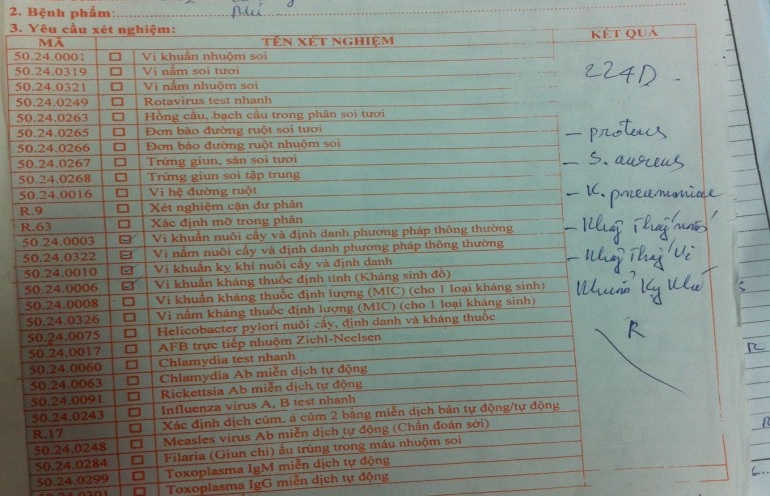 2. Bệnh phẩm: Mủ
3. Yêu cầu xét nghiệm:
MÃ TÊN XÉT NGHIỆM KẾT QUẢ
50.24.0001 Vi khuẩn nhuộm soi
50.24.0319 Vi nấm soi tươi
50.24.0321 Vi nấm nhuộm soi
50.24.0249 Rotavirus test nhanh
50.24.0263 Hồng cầu, bạch cầu trong phân soi tươi
50.24.0265 Đơn bào đường ruột soi tươi
50.24.0266 Đơn bào đường ruột nhuộm soi
50.24.0267 Trứng giun, sán soi tươi
50.24.0268 Trứng giun soi tập trung
50.24.0016 Vi hệ đường ruột
R.9 Xét nghiệm cặn dư phân
R.63 Xác định mỡ trong phân
50.24.0003 Vi khuẩn nuôi cấy và định danh phương pháp thông thường
50.24.0322 Vi nấm nuôi cấy và định danh phương pháp thông thường
50.24.0010 Vi khuẩn kỵ khí nuôi cấy và định danh
50.24.0006 Vi khuẩn kháng thuốc định tính (Kháng sinh đồ)
50.24.0008 Vi khuẩn kháng thuốc định lượng (MIC) (cho 1 loại kháng sinh)
50.24.0326 Vi nấm kháng thuốc định lượng (MIC) (cho 1 loại kháng sinh)
50.24.0075 Helicobacter pylori nuôi cấy, định danh và kháng thuốc
50.24.0017 AFB trực tiếp nhuộm Ziehl-Neelsen
50.24.0060 Chlamydia test nhanh
50.24.0063 Chlamydia Ab miễn dịch tự động
50.24.0091 Rickettsia Ab miễn dịch tự động
50.24.0243 Influenza virus A, B test nhanh
R.17 Xác định dịch cúm, á cúm 2 bằng miễn dịch bán tự động/tự động
50.24.0248 Measles virus Ab miễn dịch tự động (Chẩn đoán sởi)
50.24.0284 Filaria (Giun chỉ) ấu trùng trong máu nhuộm soi
50.24.0299 Toxoplasma IgM miễn dịch tự động
50.24.0301 Toxoplasma IgG miễn dịch tự động
224D
- proteus
- S. aureus
- K. pneumoniae
- Không thấy nấm
- Không thấy vi
khuẩn kỵ khí
R